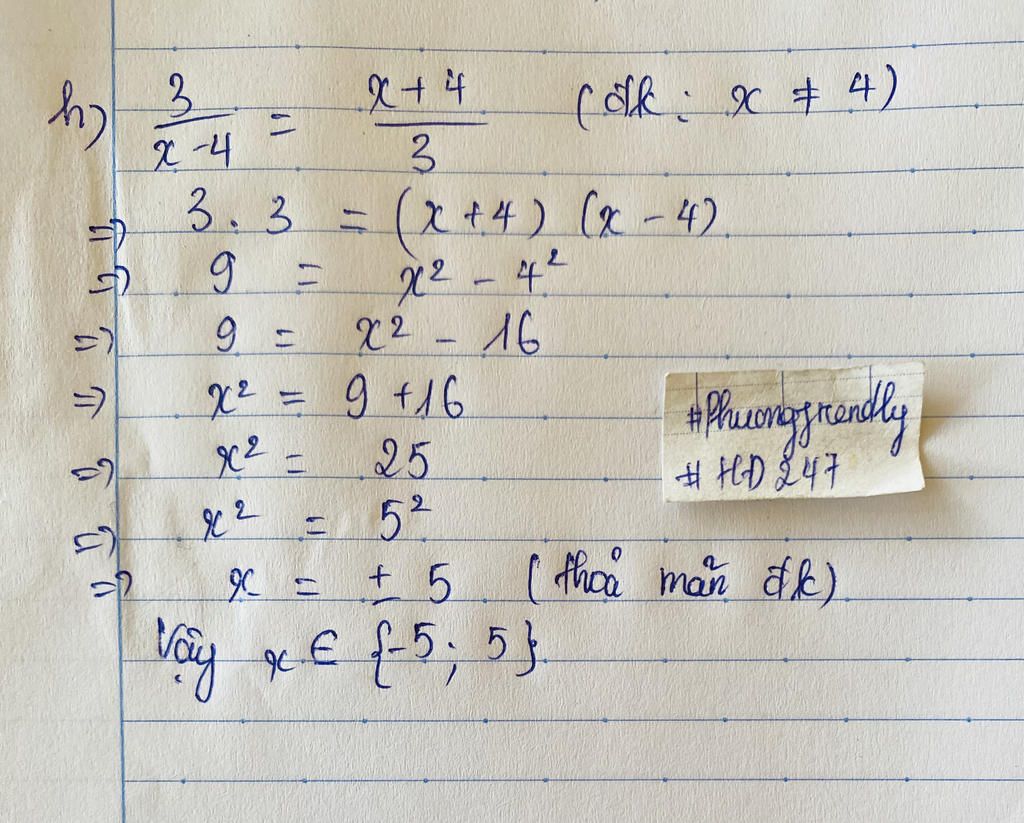 h) 3/(x-4) = (x+4)/3 (đk: x ≠ 4)
=> 3.3 = (x+4) (x-4)
=> 9 = x² - 4²
=> 9 = x² - 16
=> x² = 9 +16
=> x² = 25
=> x² = 5²
=> x = ± 5 (thoả mãn đk)
Vậy x ∈ {-5; 5}
#Phuongfrendly
# HD 247